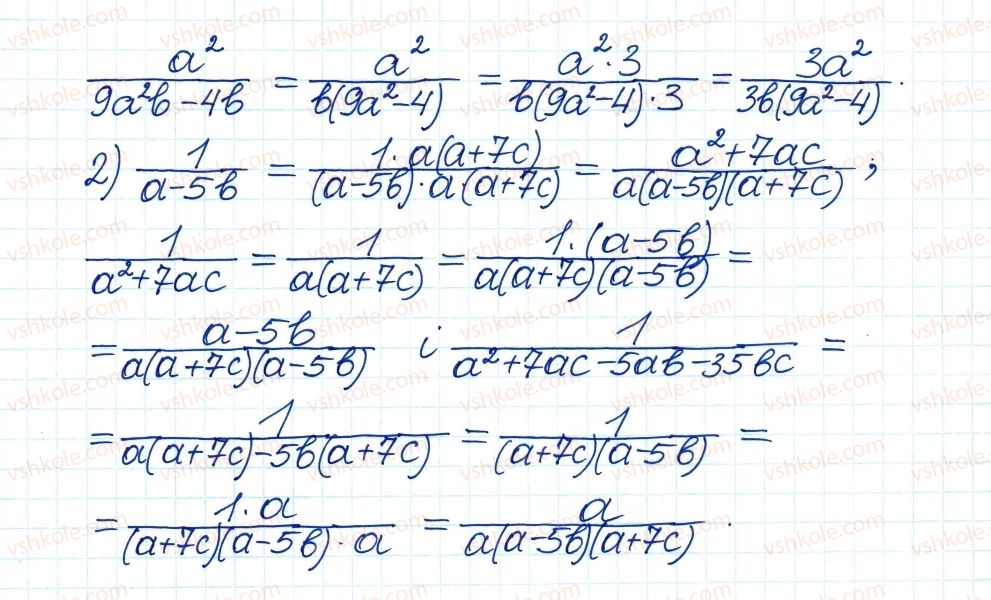 a²/(9a²b-4b) = a²/(b(9a²-4)) = (a²·3)/(b(9a²-4)·3) = 3a²/(3b(9a²-4)).
2) 1/(a-5b) = (1·a(a+7c))/((a-5b)·a(a+7c)) = (a²+7ac)/(a(a-5b)(a+7c));
1/(a²+7ac) = 1/(a(a+7c)) = (1·(a-5b))/(a(a+7c)(a-5b)) =
= (a-5b)/(a(a+7c)(a-5b)) і 1/(a²+7ac-5ab-35bc) =
= 1/(a(a+7c)-5b(a+7c)) = 1/((a+7c)(a-5b)) =
= (1·a)/((a+7c)(a-5b)·a) = a/(a(a-5b)(a+7c)).
vshkole.com